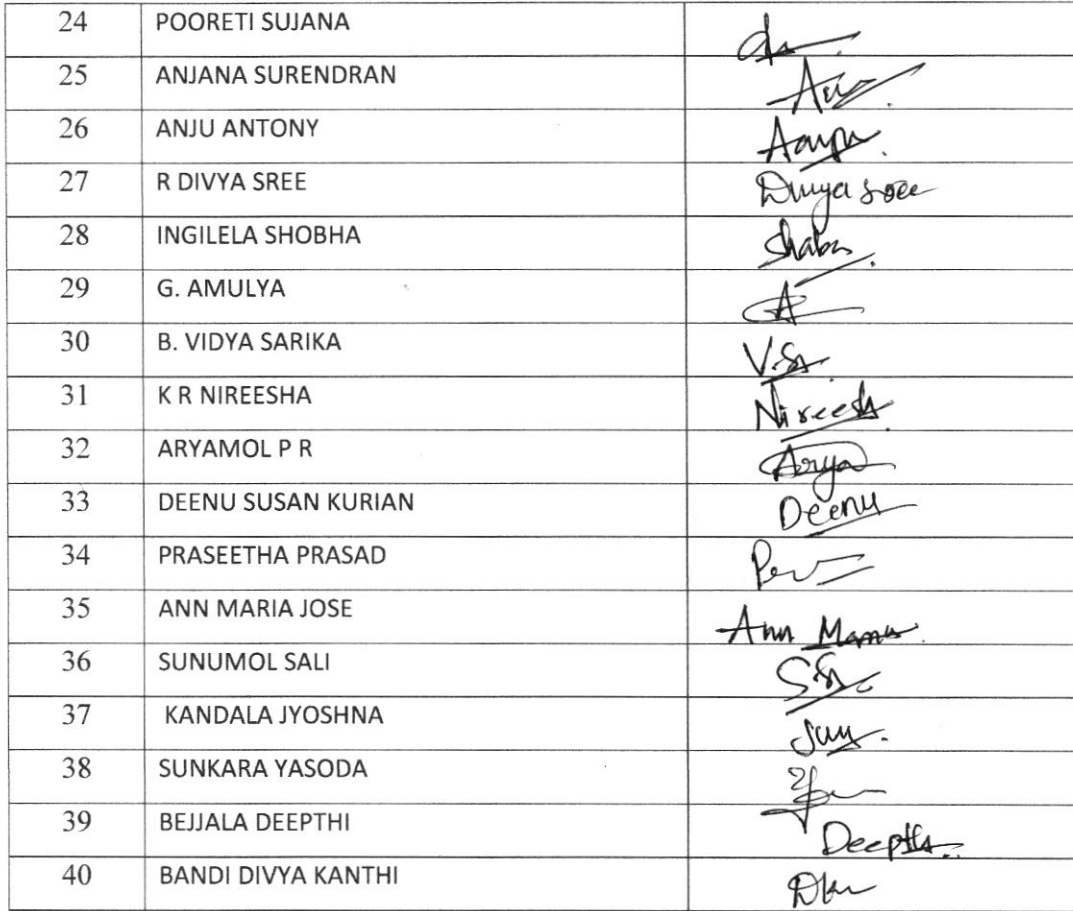 24 POORETI SUJANA
25 ANJANA SURENDRAN
26 ANJU ANTONY
27 R DIVYA SREE Divya sree
28 INGILELA SHOBHA
29 G. AMULYA A
30 B. VIDYA SARIKA
31 K R NIREESHA Nireesh
32 ARYAMOL P R Arya
33 DEENU SUSAN KURIAN Deenu
34 PRASEETHA PRASAD
35 ANN MARIA JOSE Ann Maria
36 SUNUMOL SALI
37 KANDALA JYOSHNA
38 SUNKARA YASODA
39 BEJJALA DEEPTHI Deepthi
40 BANDI DIVYA KANTHI